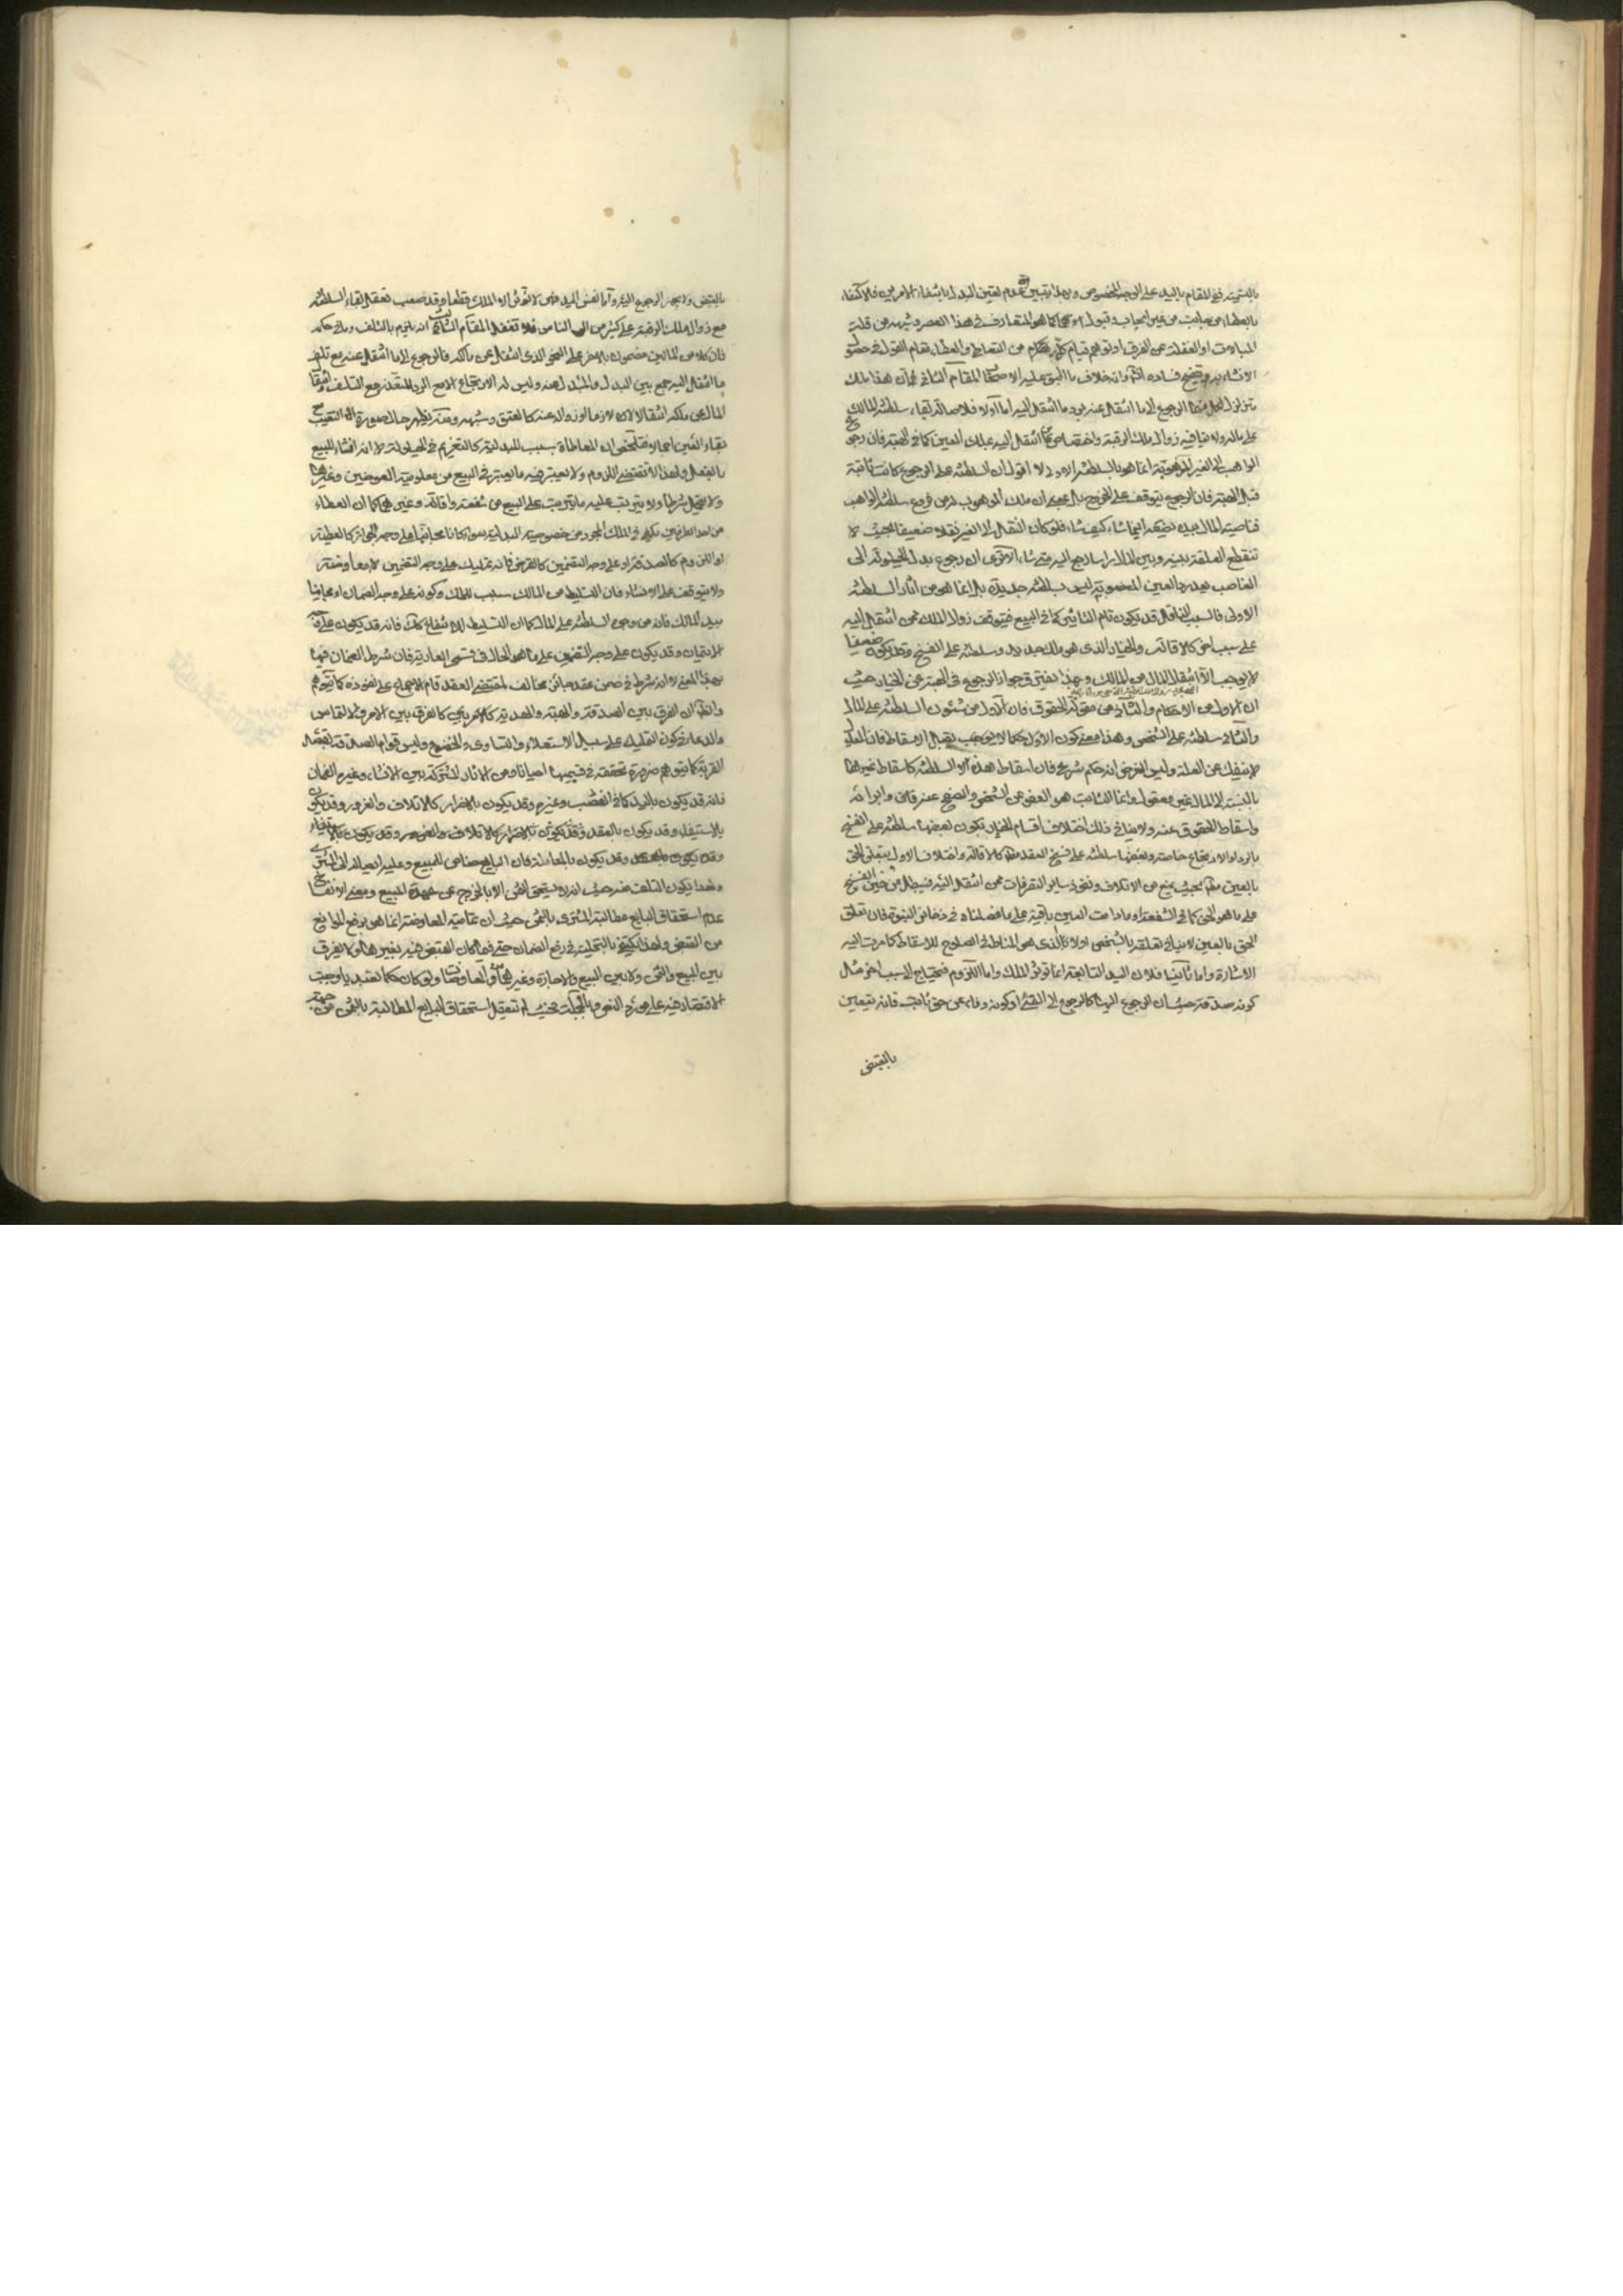 بالبتية في المقام باليد على الوجه المخصوص وبهذا تبين عدم تعين البدل بانتفاء الامرين فلا كتفاء
بالعطاء من جانب من غير ايجاب وقبول كما هو المتعارف في هذا العصر وشبهه من قلة
المبالات او الغفلة عن الفرق او توهم قيام كل مقام من التعاطي والعطاء مقام القول في حصول
الانشاء به ويتضح فساده وانه خلاف ما اتفق عليه الاصحاب المقام الثاني في ان هذا ملك
متزلزل لكل منهما الرجوع الى ما انتقل عنه برد ما انتقل اليه اما اولا فلاصالة بقاء سلطنة المالك
على ماله ولا ينافيه زوال ملك الرقبة واختصاص ما انتقل اليه بملك العين كما في الهبة فان رجوع
الواهب الى العين الموهوبة انما هو بالسلطنة الاولى لا اقول ان السلطنة على الرجوع كانت ثابتة
قبل الهبة فان الرجوع يتوقف على الخروج بل بمعنى ان ملك الموهوب له من فروع سلطنة الواهب
فناصية المال بيده يضعه اينما شاء كيف شاء فلو كان انتقال الى الغير نقلا ضعيفا بحيث لا
تنقطع العلقة بينه وبين المال راسا رجع اليه متى شاء الا ترى ان رجوع بدل الحيلولة الى
الغاصب بعد رد العين المغصوبة ليس بسلطنة جديدة بل انما هو من آثار السلطنة
الاولى فالسبب الناقل قد يكون تام التاثير كما في البيع فيتوقف زوال الملك عمن انتقل اليه
على سبب آخر كالاقالة والخيار الذي هو ملك جديد وسلطنة على الفسخ وقد يكون ضعيفا
لا يوجب الا انتقال المال من المالك وبهذا يفترق جواز الرجوع في الهبة عن الخيار حيث
ان الاول من الاحكام والثاني من مقولة الحقوق فان الاول من شئون السلطنة على المال
والثاني سلطنة على الشخص وهذا معنى كون الاول حكما لا يقبل الاسقاط فان المعلول
لا ينفك عن العلة وليس الغرض انه حكم شرعي فان اسقاط هذه السلطنة كاسقاط غيرها
بالنسبة الى المال غير معقول وانما الثابت هو العفو عن الشخص والصفح عنه وابرائه
واسقاط الحقوق عنه ولا ينافي ذلك اختلاف اقسام الخيار بكون بعضها سلطنة على الفسخ
بالرد او الاسترجاع خاصة وبعضها سلطنة على فسخ العقد كالاقالة واختلاف الاول بتعلق الحق
بالعين بحيث يمنع من الاتلاف ونفوذ سائر التصرفات ممن انتقل اليه فيبطل من حين الفسخ
على ما هو الحق كما في الشفعة او ما دامت العين باقية على ما فصلناه في ذخائر النبوة فان تعلق
الحق بالعين لا ينافي تعلقه بالشخص اولا الذي هو المناط في الصلوح للاسقاط كما مرت اليه
الاشارة واما ثانيا فلان اليد التابعة انما تؤثر الملك واما اللزوم فيحتاج الى سبب آخر مثل
كونه صدقة حيث ان الرجوع اليها كالرجوع الى القيء او كونه وفاء عن حق ثابت فانه يتعين
بالقبض
بالقبض ولا يجوز الرجوع اليه واما نفس اليد فهي لا تؤثر الا الملك قطعا وقد صعب تعقل بقاء السلطنة
مع زوال ملك الرقبة على كثير من الناس فلا تغفل المقام الثالث انه يلزم بالتلف وما في حكمه
فان كلا من المالين مضمون بالاخر على النحو الذي انتقل عن مالكه فالرجوع الى ما انتقل عنه مع تلف
ما انتقل اليه جمع بين البدل والمبدل عنه وليس له الارتجاع الا مع الرد المتعذر مع التلف وانتقال
المال عن ملكه انتقالا لازما او زواله عنه كالعتق وشبهه ومنه يظهر حال صورة التعيب
بقاء العين
بالفعل ولهذا لا تقتضي اللزوم ولا يعتبر فيه ما يعتبر في البيع من معلومية العوضين وغيرها
ولا يترتب عليه ما يترتب على البيع من شفعة واقالة وغيرهما كما ان العطاء
من احد الطرفين يكفي في الملك المجرد من خصوصية البدلية سواء كانا مجانيا على وجه الجواز كالعطية
او اللزوم كالصدقة او على وجه التضمين كالقرض فانه تمليك على وجه التضمين لا معاوضة
ولا يتوقف على الانشاء فان التسليط من المالك سبب للملك وكونه على وجه الضمان او مجانيا
بيد المالك فانه من وجوه السلطنة على المال كما ان التسليط للانتفاع كذلك فانه قد يكون على وجه
الائتمان وقد يكون على وجه التضمين على ما هو الحال في قسمي العارية فان شرط الضمان فيها
بهذا المعنى لا انه شرط في ضمن عقد جائز مخالف لمقتضى العقد قام الاجماع على نفوذه كما يتوهم
والظاهر ان الفرق بين الصدقة والهبة والهدية كالفرق بين الامر والالتماس
والدعاء في كون التمليك على سبيل الاستعلاء والتساوي والخضوع وليس قوام الصدقة بقصد
القربة كما يتوهم ضرورة تحققه في قسيميها احيانا ومن الآثار المشتركة بين الانشاء وغيره الضمان
فانه قد يكون باليد كما في الغصب وغيره وقد يكون بالاضرار كالاتلاف والغرور وقد يكون
بالاستيفاء وقد يكون بالعقد
وقد يكون بالمعاملة فان البايع ضامن للمبيع وعليه ايصاله الى المشتري
ولهذا يكون التلف منه حيث انه لا يستحق الثمن الا بالخروج عن عهدة المبيع ومعنى الانفساخ
عدم استحقاق البايع مطالبة المشتري بالثمن حيث ان تمامية المعاوضة انما هو برفع الموانع
من القبض ولهذا يكتفى بالتخلية في رفع الضمان حتى فيما كان القبض فيه بغيرها ولا يفرق
بين المبيع والثمن ولا بين البيع والاجارة وغيرهما من المعاوضات ولو كان حكما تعبديا لوجب
الاقتصار فيه على مورد النص وبالجملة